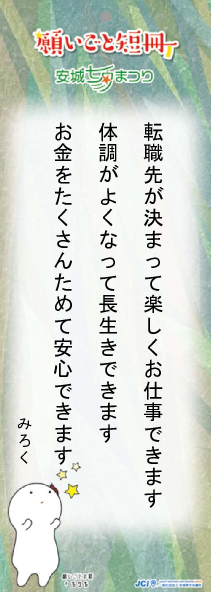 願いごと短冊
安城七夕まつり
転職先が決まって楽しくお仕事できます
体調がよくなって長生きできます
お金をたくさんためて安心できます
みろく
JCI